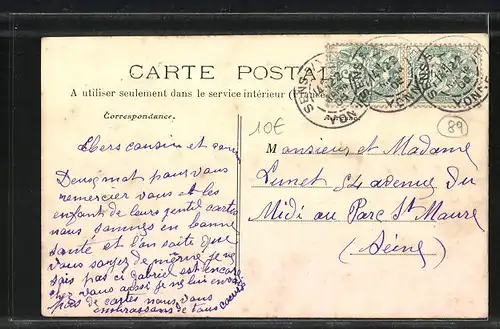 CARTE POSTA
A utiliser seulement dans le service intérieur (Fran
Correspondance.
10€
89
SENS YONNE
Chers cousin et cousi
Deux mot pour vous
remercier vous et les
enfants de leurs gentil cartes
nous sommes en bonne
santé et l'on saite que
vous soyez de même je ne
sais pas ci gabriel est encore
chez vous aussi je ne lui envoi
pas de cartes nous vous
embrassons de tous coeurs
Monsieur et Madame
Lunet 64 avenue du
Midi au Parc St Maure
(Séine)